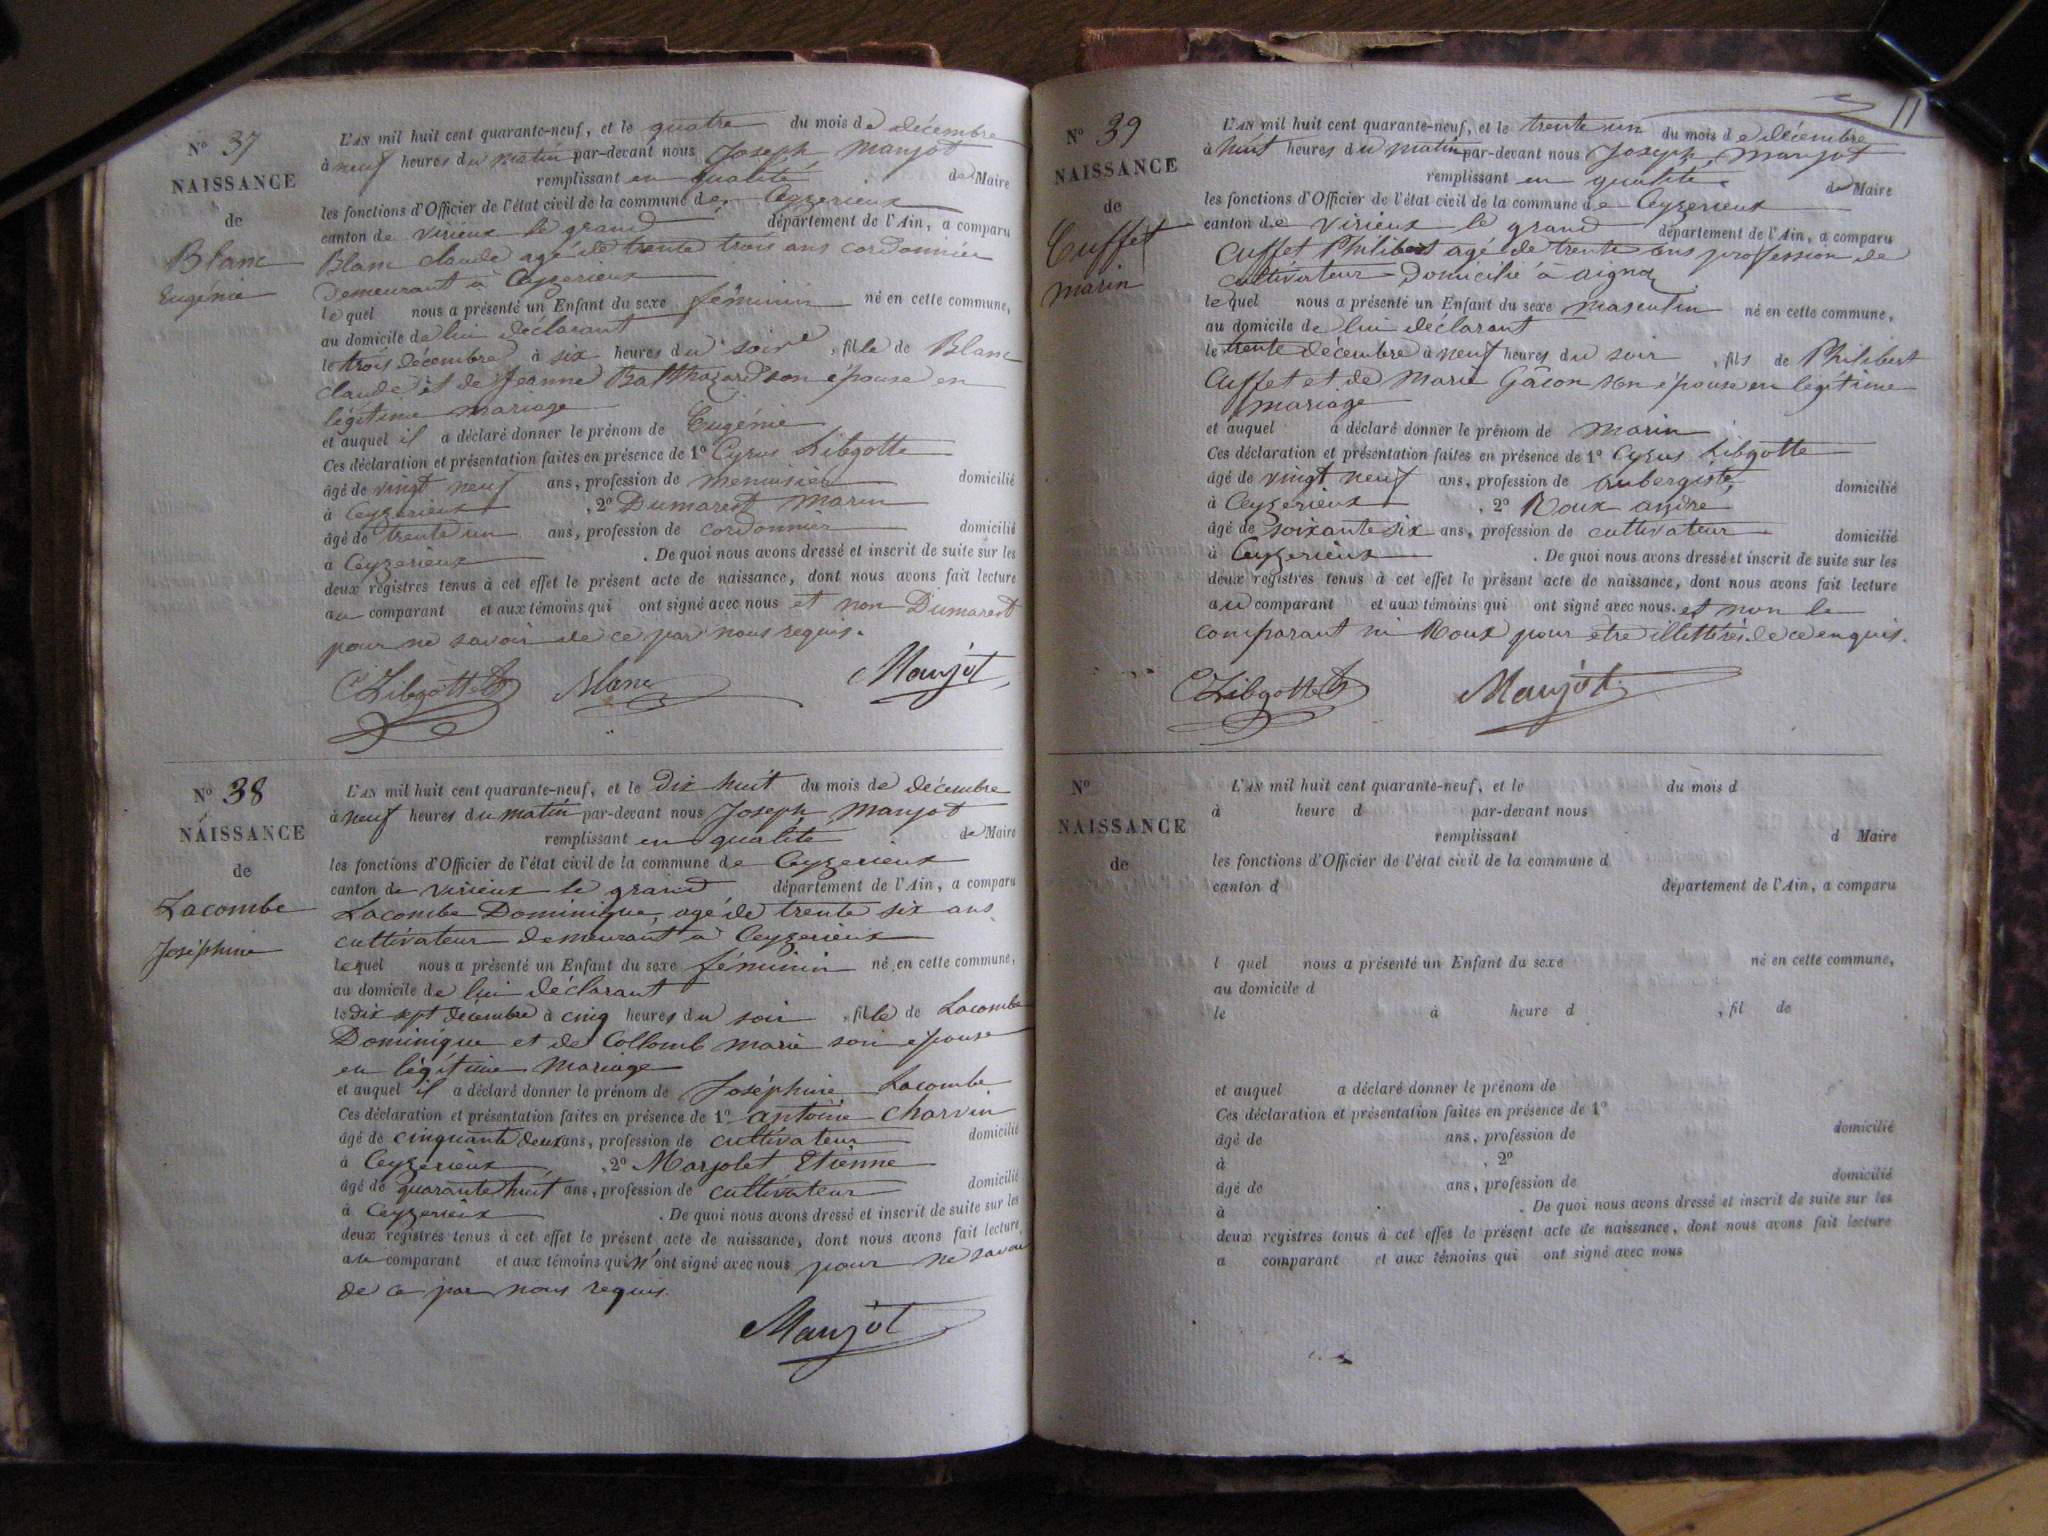 N° 37
NAISSANCE
de
Blanc
Eugénie
L'AN mil huit cent quarante-neuf, et le quatre du mois de décembre
à neuf heures du matin par-devant nous Joseph Manjot
remplissant en qualité de Maire
les fonctions d'Officier de l'état civil de la commune de Ceyzerieux
canton de virieux le grand département de l'Ain, a comparu
Blanc claude agé de trente trois ans cordonnier
demeurant à Ceyzerieux
lequel nous a présenté un Enfant du sexe féminin né en cette commune,
au domicile de lui déclarant
le trois décembre à six heures du soir, fille de Blanc
claude et de Jeanne Balthazard son épouse en
légitime mariage
et auquel il a déclaré donner le prénom de Eugénie
Ces déclaration et présentation faites en présence de 1° Cyrus Libgotte
âgé de vingt neuf ans, profession de menuisier domicilié
à Ceyzerieux, 2° Dumarest Marin
âgé de trente un ans, profession de cordonnier domicilié
à Ceyzerieux. De quoi nous avons dressé et inscrit de suite sur les
deux registres tenus à cet effet le présent acte de naissance, dont nous avons fait lecture
au comparant et aux témoins qui ont signé avec nous et non Dumarest
pour ne savoir de ce par nous requis.
C Libgotte Blanc Manjot
N° 38
NAISSANCE
de
Lacombe
Joséphine
L'AN mil huit cent quarante-neuf, et le dix huit du mois de décembre
à neuf heures du matin par-devant nous Joseph Manjot
remplissant en qualité de Maire
les fonctions d'Officier de l'état civil de la commune de Ceyzerieux
canton de virieux le grand département de l'Ain, a comparu
Lacombe Dominique, agé de trente six ans
cultivateur demeurant à Ceyzerieux
lequel nous a présenté un Enfant du sexe féminin né en cette commune,
au domicile de lui déclarant
le dix sept décembre à cinq heures du soir, fille de Lacombe
Dominique et de Collomb marie son épouse
en légitime mariage
et auquel il a déclaré donner le prénom de Joséphine Lacombe
Ces déclaration et présentation faites en présence de 1° antoine Charvin
âgé de cinquante deux ans, profession de cultivateur domicilié
à Ceyzerieux, 2° Marjolet Etienne
âgé de quarante huit ans, profession de cultivateur domicilié
à Ceyzerieux. De quoi nous avons dressé et inscrit de suite sur les
deux registres tenus à cet effet le présent acte de naissance, dont nous avons fait lecture
au comparant et aux témoins qui n'ont signé avec nous pour ne savoir
de ce par nous requis.
Manjot
11
N° 39
NAISSANCE
de
Cuffet
marin
L'AN mil huit cent quarante-neuf, et le trente un du mois de décembre
à huit heures du matin par-devant nous Joseph Manjot
remplissant en qualité de Maire
les fonctions d'Officier de l'état civil de la commune de Ceyzerieux
canton de virieux le grand département de l'Ain, a comparu
Cuffet Philibert agé de trente ans profession de
cultivateur domicilié à aignoz
lequel nous a présenté un Enfant du sexe masculin né en cette commune,
au domicile de lui déclarant
le trente décembre à neuf heures du soir, fils de Philibert
Cuffet et de Marie Gâcon son épouse en légitime
mariage
et auquel a déclaré donner le prénom de marin
Ces déclaration et présentation faites en présence de 1° Cyrus Libgotte
âgé de vingt neuf ans, profession de aubergiste, domicilié
à Ceyzerieux, 2° Roux andré
âgé de soixante six ans, profession de cultivateur domicilié
à Ceyzerieux. De quoi nous avons dressé et inscrit de suite sur les
deux registres tenus à cet effet le présent acte de naissance, dont nous avons fait lecture
au comparant et aux témoins qui ont signé avec nous. et non le
comparant ni Roux pour etre illettrés de ce enquis.
C Libgotte Manjot
N°
NAISSANCE
de
L'AN mil huit cent quarante-neuf, et le du mois d
à heure d par-devant nous
remplissant d Maire
les fonctions d'Officier de l'état civil de la commune d
canton d département de l'Ain, a comparu
l quel nous a présenté un Enfant du sexe né en cette commune,
au domicile d
le à heure d , fil de
et auquel a déclaré donner le prénom de
Ces déclaration et présentation faites en présence de 1°
âgé de ans, profession de domicilié
à , 2°
âgé de ans, profession de domicilié
à . De quoi nous avons dressé et inscrit de suite sur les
deux registres tenus à cet effet le présent acte de naissance, dont nous avons fait lecture
a comparant et aux témoins qui ont signé avec nous